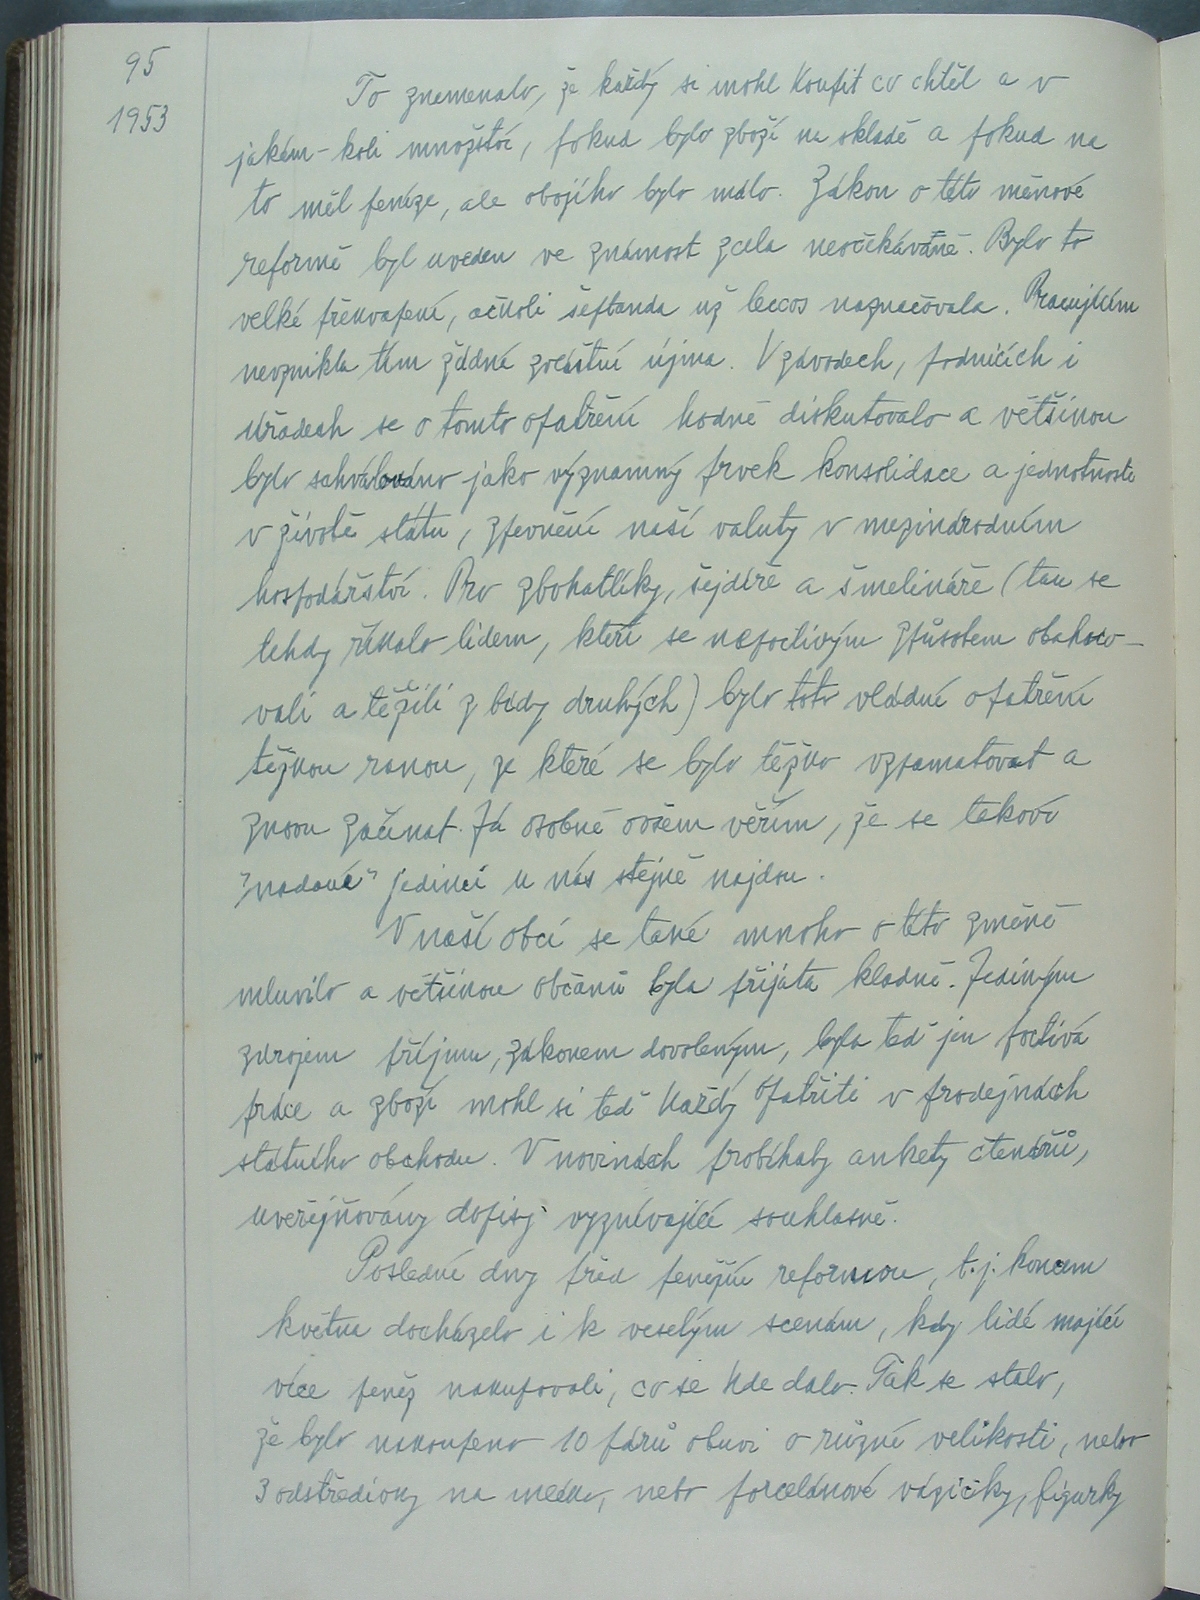 95
1953
To znamenalo, že každý si mohl koupit co chtěl a v
jakém-koli množství, pokud bylo zboží na skladě a pokud na
to měl peníze, ale obojího bylo málo. Zákon o této měnové
reformě byl uveden ve známost zcela neočekávaně. Bylo to
velké překvapení, ačkoli šeptanda už leccos naznačovala. Pracujícím
nevznikla tím žádná zvláštní újma. V závodech, podnicích i
úřadech se o tomto opatření hodně diskutovalo a většinou
bylo schvalováno jako významný prvek konsolidace a jednotnosti
v životě státu, zpevnění naší valuty v mezinárodním
hospodářství. Pro zbohatlíky, šejdíře a šmelináře (tak se
tehdy říkalo lidem, kteří se nepoctivým způsobem obohaco-
vali a těžili z bídy druhých) bylo toto vládní opatření
těžkou ranou, ze které se bylo těžko vzpamatovat a
znovu začínat. Já osobně ovšem věřím, že se takoví
"nadaní" jedinci u nás stejně najdou.
V naší obci se také mnoho o této změně
mluvilo a většinou občanů byla přijata kladně. Jediným
zdrojem příjmu, zákonem dovoleným, byla teď jen poctivá
práce a zboží mohl si teď každý opatřiti v prodejnách
státního obchodu. V novinách probíhaly ankety čtenářů,
uveřejňovány dopisy vyznívající souhlasně.
Poslední dny před peněžní reformou, t.j. koncem
května docházelo i k veselým scenám, kdy lidé mající
více peněz nakupovali, co se kde dalo. Tak se stalo,
že bylo nakoupeno 10 párů obuvi o různé velikosti, nebo
3 odstředivky na mléko, nebo porcelánové vázičky, figurky